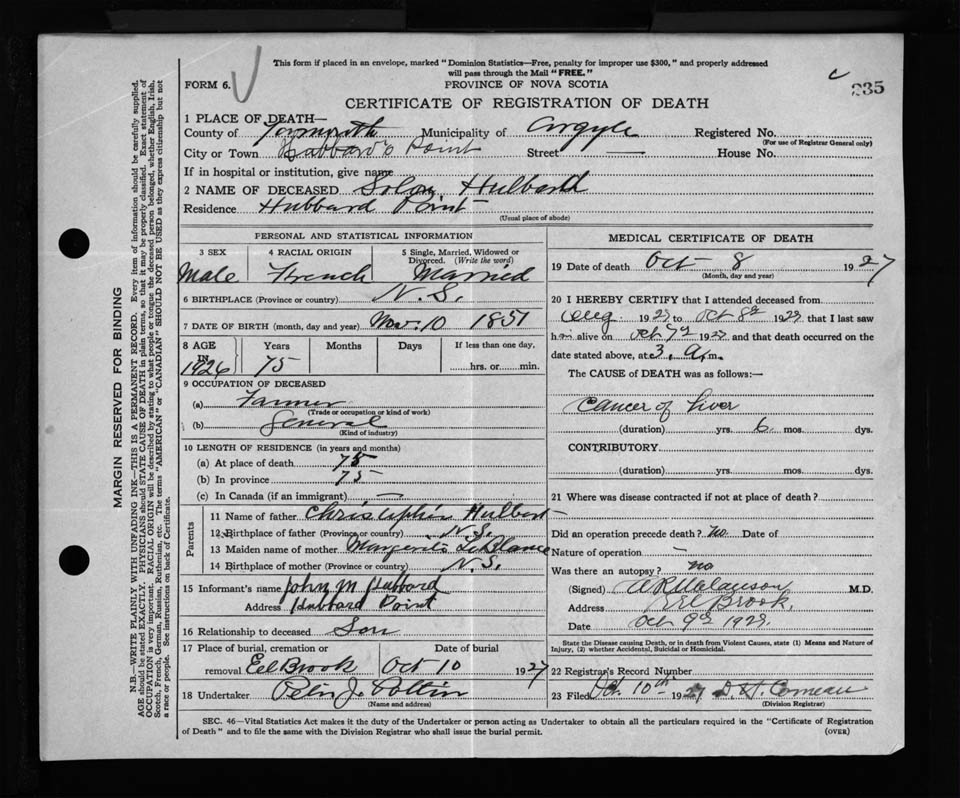 This form if placed in an envelope, marked "Dominion Statistics—Free, penalty for improper use $300," and properly addressed
will pass through the Mail "FREE."
FORM 6.
PROVINCE OF NOVA SCOTIA
235
CERTIFICATE OF REGISTRATION OF DEATH
1 PLACE OF DEATH—
County of Yarmouth Municipality of Argyle Registered No.
(For use of Registrar General only)
City or Town Hubbard's Point Street — House No.
If in hospital or institution, give name
2 NAME OF DECEASED Hulbard
Residence Hubbard Point
(Usual place of abode)
PERSONAL AND STATISTICAL INFORMATION
3 SEX 4 RACIAL ORIGIN 5 Single, Married, Widowed or
Divorced. (Write the word)
Male French Married
6 BIRTHPLACE (Province or country) N.S.
7 DATE OF BIRTH (month, day and year) Nov. 10 1851
8 AGE Years Months Days If less than one day,
IN
1926 75 hrs. or min.
9 OCCUPATION OF DECEASED
(a) Farmer
(Trade or occupation or kind of work)
(b) General
(Kind of industry)
10 LENGTH OF RESIDENCE (in years and months)
(a) At place of death 75
(b) In province 75
(c) In Canada (if an immigrant) —
Parents
11 Name of father Hulbert
12 Birthplace of father (Province or country) N.S.
13 Maiden name of mother LeBlanc
14 Birthplace of mother (Province or country) N.S.
15 Informant's name John M Hubbard
Address Hubbard Point
16 Relationship to deceased Son
17 Place of burial, cremation or Date of burial
removal Eel Brook Oct 10 1927
18 Undertaker Peter J. Pottier
(Name and address)
MEDICAL CERTIFICATE OF DEATH
19 Date of death Oct 8 1927
(Month, day and year)
20 I HEREBY CERTIFY that I attended deceased from
Aug. 1927 to Oct 8th 1927 that I last saw
him alive on Oct 7th 1927 and that death occurred on the
date stated above, at 3. A.m.
The CAUSE of DEATH was as follows:—
Cancer of Liver
(duration) yrs. 6 mos. dys.
CONTRIBUTORY
(duration) yrs. mos. dys.
21 Where was disease contracted if not at place of death?
Did an operation precede death? No Date of
Nature of operation —
Was there an autopsy? no
(Signed) M.D.
Address Eel Brook.
Date Oct 9th 1927.
State the Disease causing Death, or in death from Violent Causes, state (1) Means and Nature of
Injury, (2) whether Accidental, Suicidal or Homicidal.
22 Registrar's Record Number
23 Filed Oct. 10th 1927 Comeau
(Division Registrar)
SEC. 46—Vital Statistics Act makes it the duty of the Undertaker or person acting as Undertaker to obtain all the particulars required in the "Certificate of Registration
of Death" and to file the same with the Division Registrar who shall issue the burial permit.
(OVER)
MARGIN RESERVED FOR BINDING
N.B.—WRITE PLAINLY WITH UNFADING INK—THIS IS A PERMANENT RECORD. Every item of information should be carefully supplied.
AGE should be stated EXACTLY. PHYSICIANS should STATE CAUSE OF DEATH in plain terms, so that it may be properly classified. Exact statement of
OCCUPATION is very important. RACIAL ORIGIN will be described by stating to what people or tongue the deceased person belonged, whether English, Irish,
Scotch, French, German, Russian, Ruthenian, etc. The terms "AMERICAN" or "CANADIAN" SHOULD NOT BE USED as they express citizenship but not
a race or people. See instructions on back of Certificate.